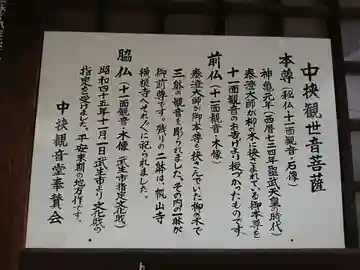 中挾観世音菩薩
本尊（秘仏・十一面観音・石像）
神亀元年（西暦七二四年聖武天皇の時代）
泰澄大師が柳の木に挾まれている御本尊を
十一面観音のお告げで授かったものです
前仏（十一面観音・木像）
泰澄大師が御本尊を挾さんでいた柳の木で
三躰の観音を彫られました。その内の一躰が
御前尊です。残りの二躰は、帆山寺
横根寺へそれぞれに祀られました。
脇仏（十一面観音・木像 武生市指定文化財）
昭和四十五年十一月一日武生市より文化財の
指定を受けました。平安末期の地方作です。
中挾観音堂奉賛会